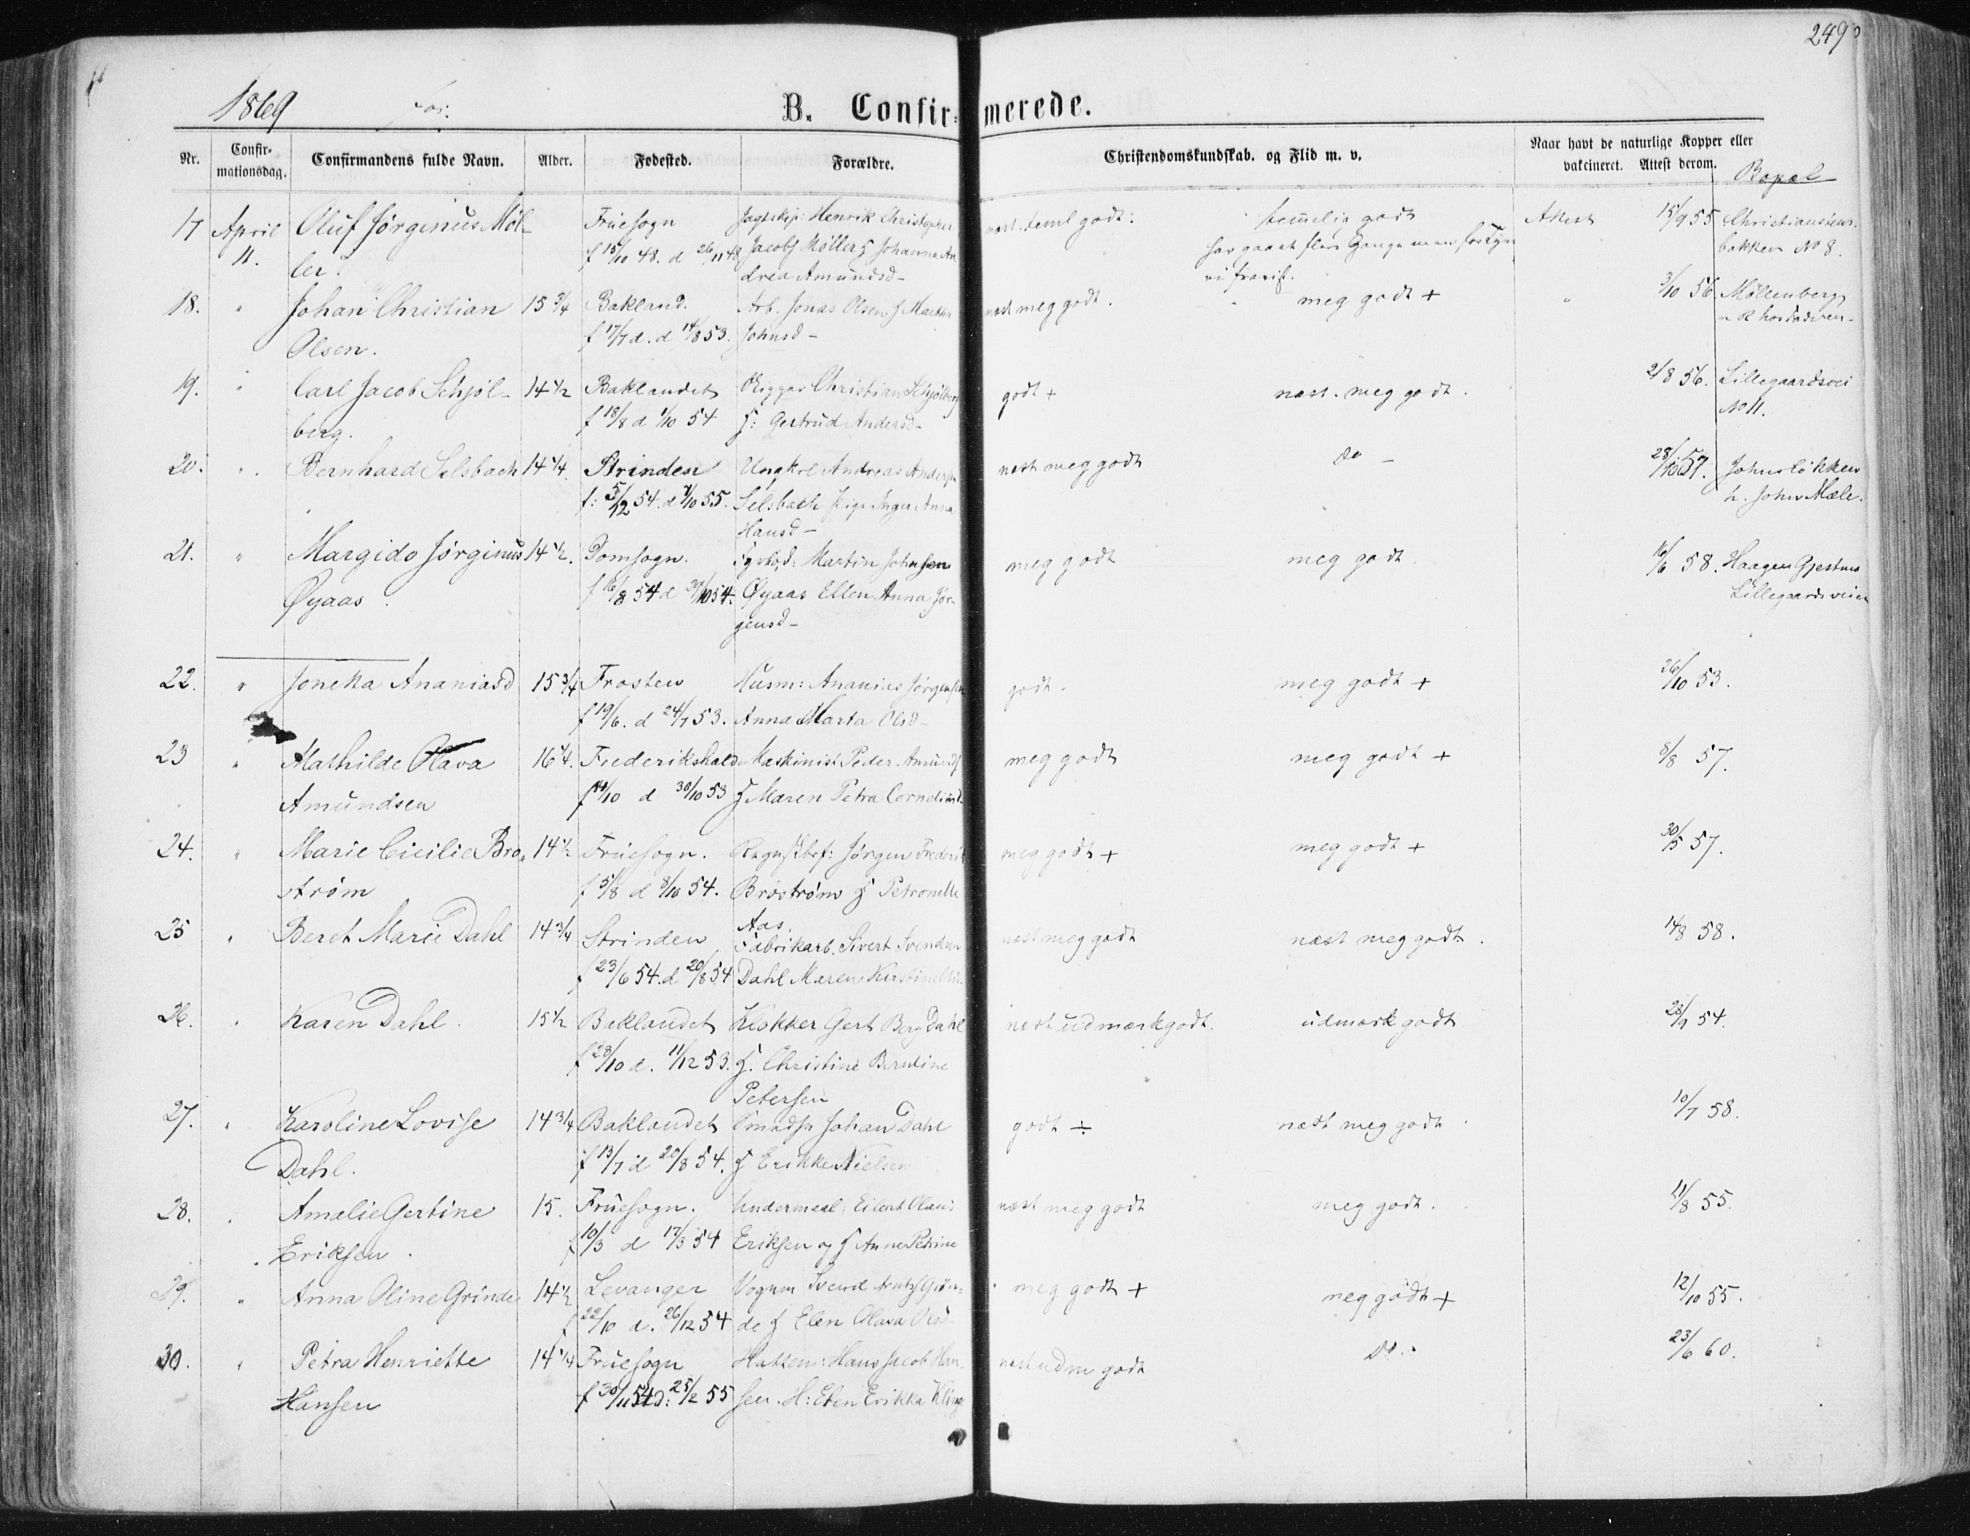 249
1869
B. Confirmerede.
Nr. Confirmationsdag. Confirmandens fulde Navn. Alder. Fødested. Forældre. Christendomskundskab. og Flid m. v. Naar havt de naturlige Kopper eller vakcineret. Attest derom. Bopæl
17 April Oluf Jørginus Møl- Fruesogn Henrik Christopher temelig godt Attest 15/9 55 Christianstens-
11. ler. f 15/10 48. d 26/11 48 Jacobs Møller Johanna An- bakken No 8.
drea Amundsd-
18. " Johan Christian 15 3/4 Bakland. Arb. Jonas Olsen næst meg godt. meg godt + " 3/10 56 Møllenberg
Olsen. f 17/7 d. d 14/8 53. Johnsd-
19. " Carl Jacob Schjøl- 14 1/2 Baklandet Christian Schjølberg godt + næst. meg godt. 2/8 56. Lillegaardsvei
berg. f 18/8 d 1/10 54 Gertrud Andersd- No 11.
20. " Bernhard Selsbach 14 1/4. Strinden Ungkrl Andreas Anders næst meg godt do - Johnsløkken
f: 5/12 54. d 7/10 55. Selsbach Pige Inger Anna h. John Mæle.
Hansd-
21. " Margido Jørginus 14 1/2. Domsogn. Martin Johnsen meg godt meg godt 16/6 58. Haagen Gjestnes
Øyaas. f 16/8 54 d 29/10 54. Øyaas Ellen Anna Jør- Lillegaardsveien
gensd-
22. " Jonetta Ananiasd 15 3/4 Frosten Husm: Ananias Jørgensen godt - meg godt + 26/10 53.
f 19/6. d 24/7 53. Anna Marta Olsd-
23 " Mathilde Olava 16 1/4. Frederikshald Maskinist Peder Amunds meg godt meg godt + 8/8 57.
Amundsen d 30/10 53 Maren Petra
24. " Marie Cicilie Bro- 14 1/2 Fruesogn. Jørgen Frederik meg godt + meg godt + 30/5 57.
strøm f 5/8 d 8/10 54. Brostrøm Petronelle
Aas.
25 " Beret Marie Dahl 14 3/4 Strinden Fabrikarb. Sivert Svendsen næst meg godt næst meg godt. 14/8 58.
f 23/6 54. d 20/8 54 Dahl Maren
26. " Karen Dahl. 15 1/2 Baklandet Klokker Gert Berg Dahl næst udmærk godt. udmærk godt 28/9 54.
f 28/10 d. 11/12 53. Christine Berntine
Petersen
27. " Karoline Lovise 14 3/4 Baklandet Johan Dahl godt ÷ næst meg godt. 10/7 58.
Dahl. f 13/7 d 20/8 54. Erikke Nielsen
28. " Amalie Gertine 15. Fruesogn. Eilert Olaus næst meg godt meg godt. 11/8 55.
Eriksen. f 10/3 d 17/3 54 Eriksen og Anne Petrine
29. " Anna Oline Grinde 14 1/2 Levanger meg godt + meg godt + 12/10 55.
f 22/10 d. 26/12 54 de Elen Olava Olsd
30. " Petra Henriette 14 1/4 Fruesogn Hans Jacob Han- næst udm godt do. 23/6 60.
Hansen f 30/11 54 d: 25/2 55 sen. H: Elen Erikka Kling